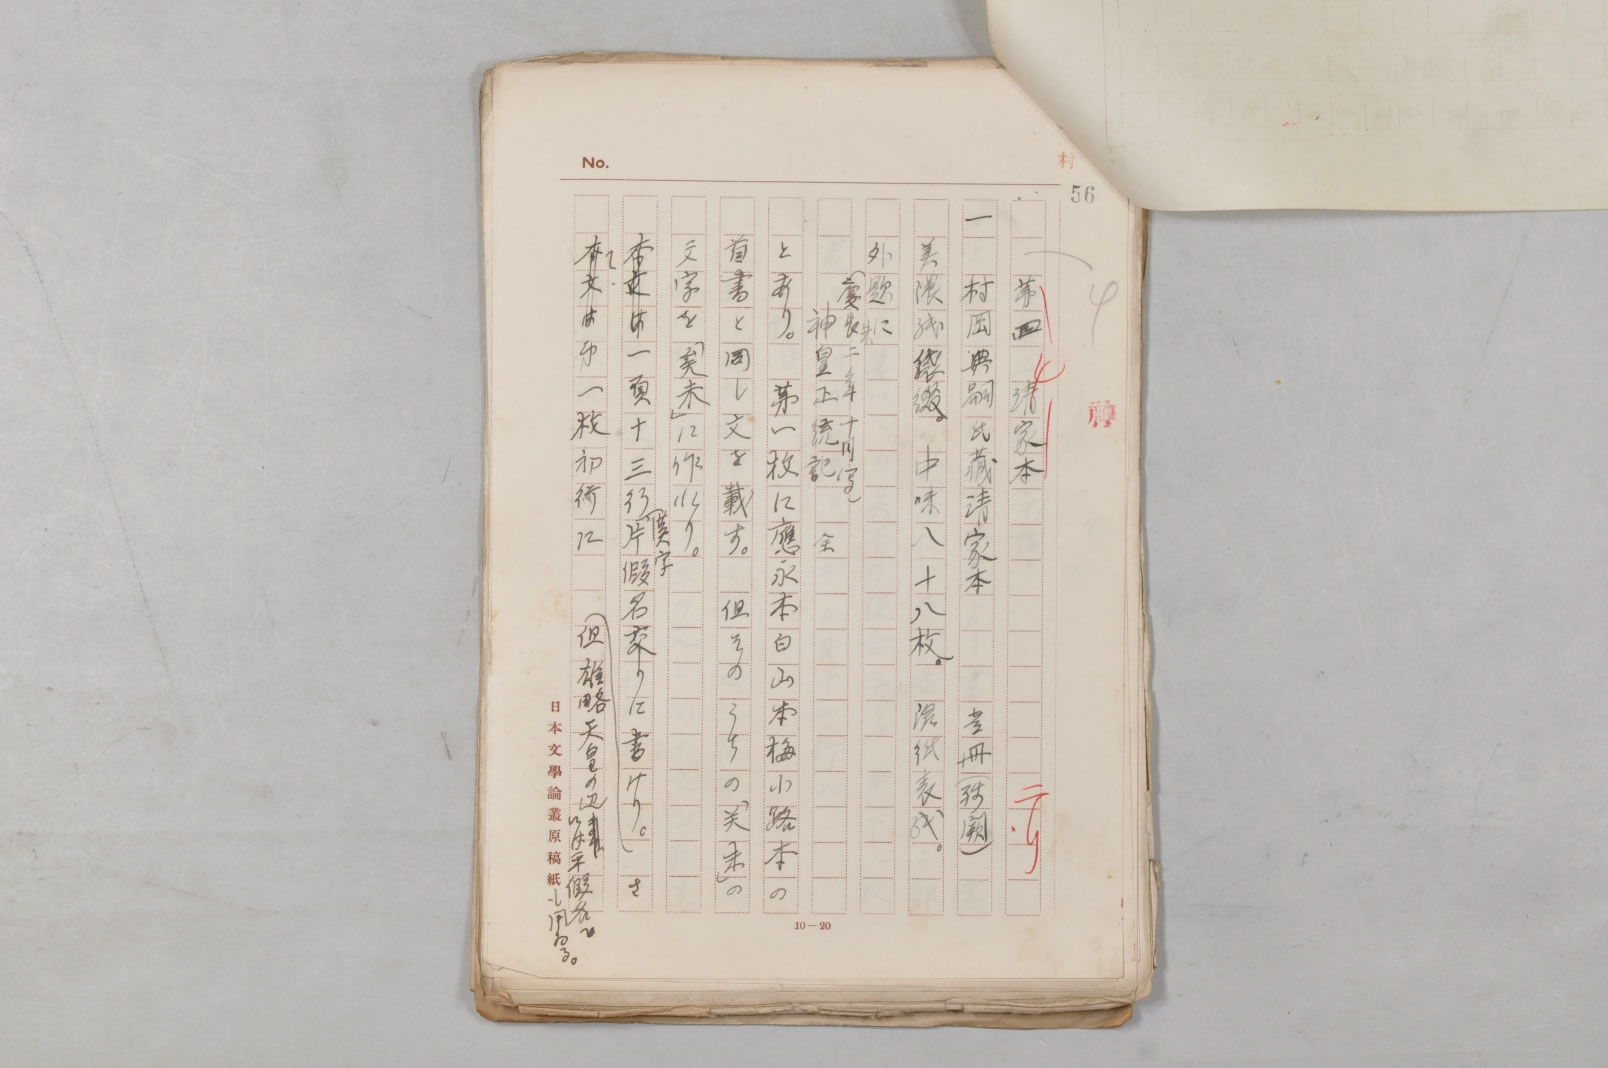 No.
村
56
第四 清家本
一 村岡典嗣氏蔵清家本 壹冊(残闕)
美濃紙袋綴。中味八十八枚。澁紙表紙。
外題に
(慶長二年十月写)
神皇正統記 全
とあり。 第一枚に應永本白山本梅小路本の
首書と同し文を載す。 但そのうちの「关未」の
文字を「癸未」に作れり。
本文は一頁十三行漢字片假名交りに書けり。さ
て、本文は第一枚初行に
(但雄略天皇の辺には平假名も用ゐる。)
10—20
日本文學論叢原稿紙